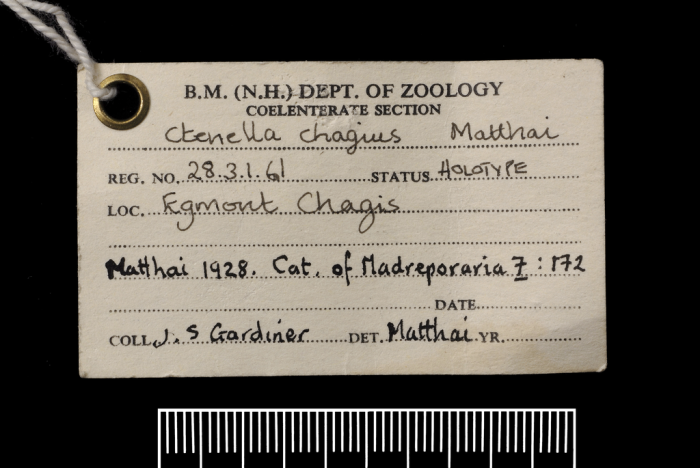 B.M. (N.H.) DEPT. OF ZOOLOGY
COELENTERATE SECTION
Ctenella chagius Matthai
REG. NO. 28.3.1.61 STATUS HOLOTYPE
LOC. Egmont Chagis
Matthai 1928. Cat. of Madreporaria 7 : 172
DATE
COLL. J. S Gardiner DET. Matthai YR.